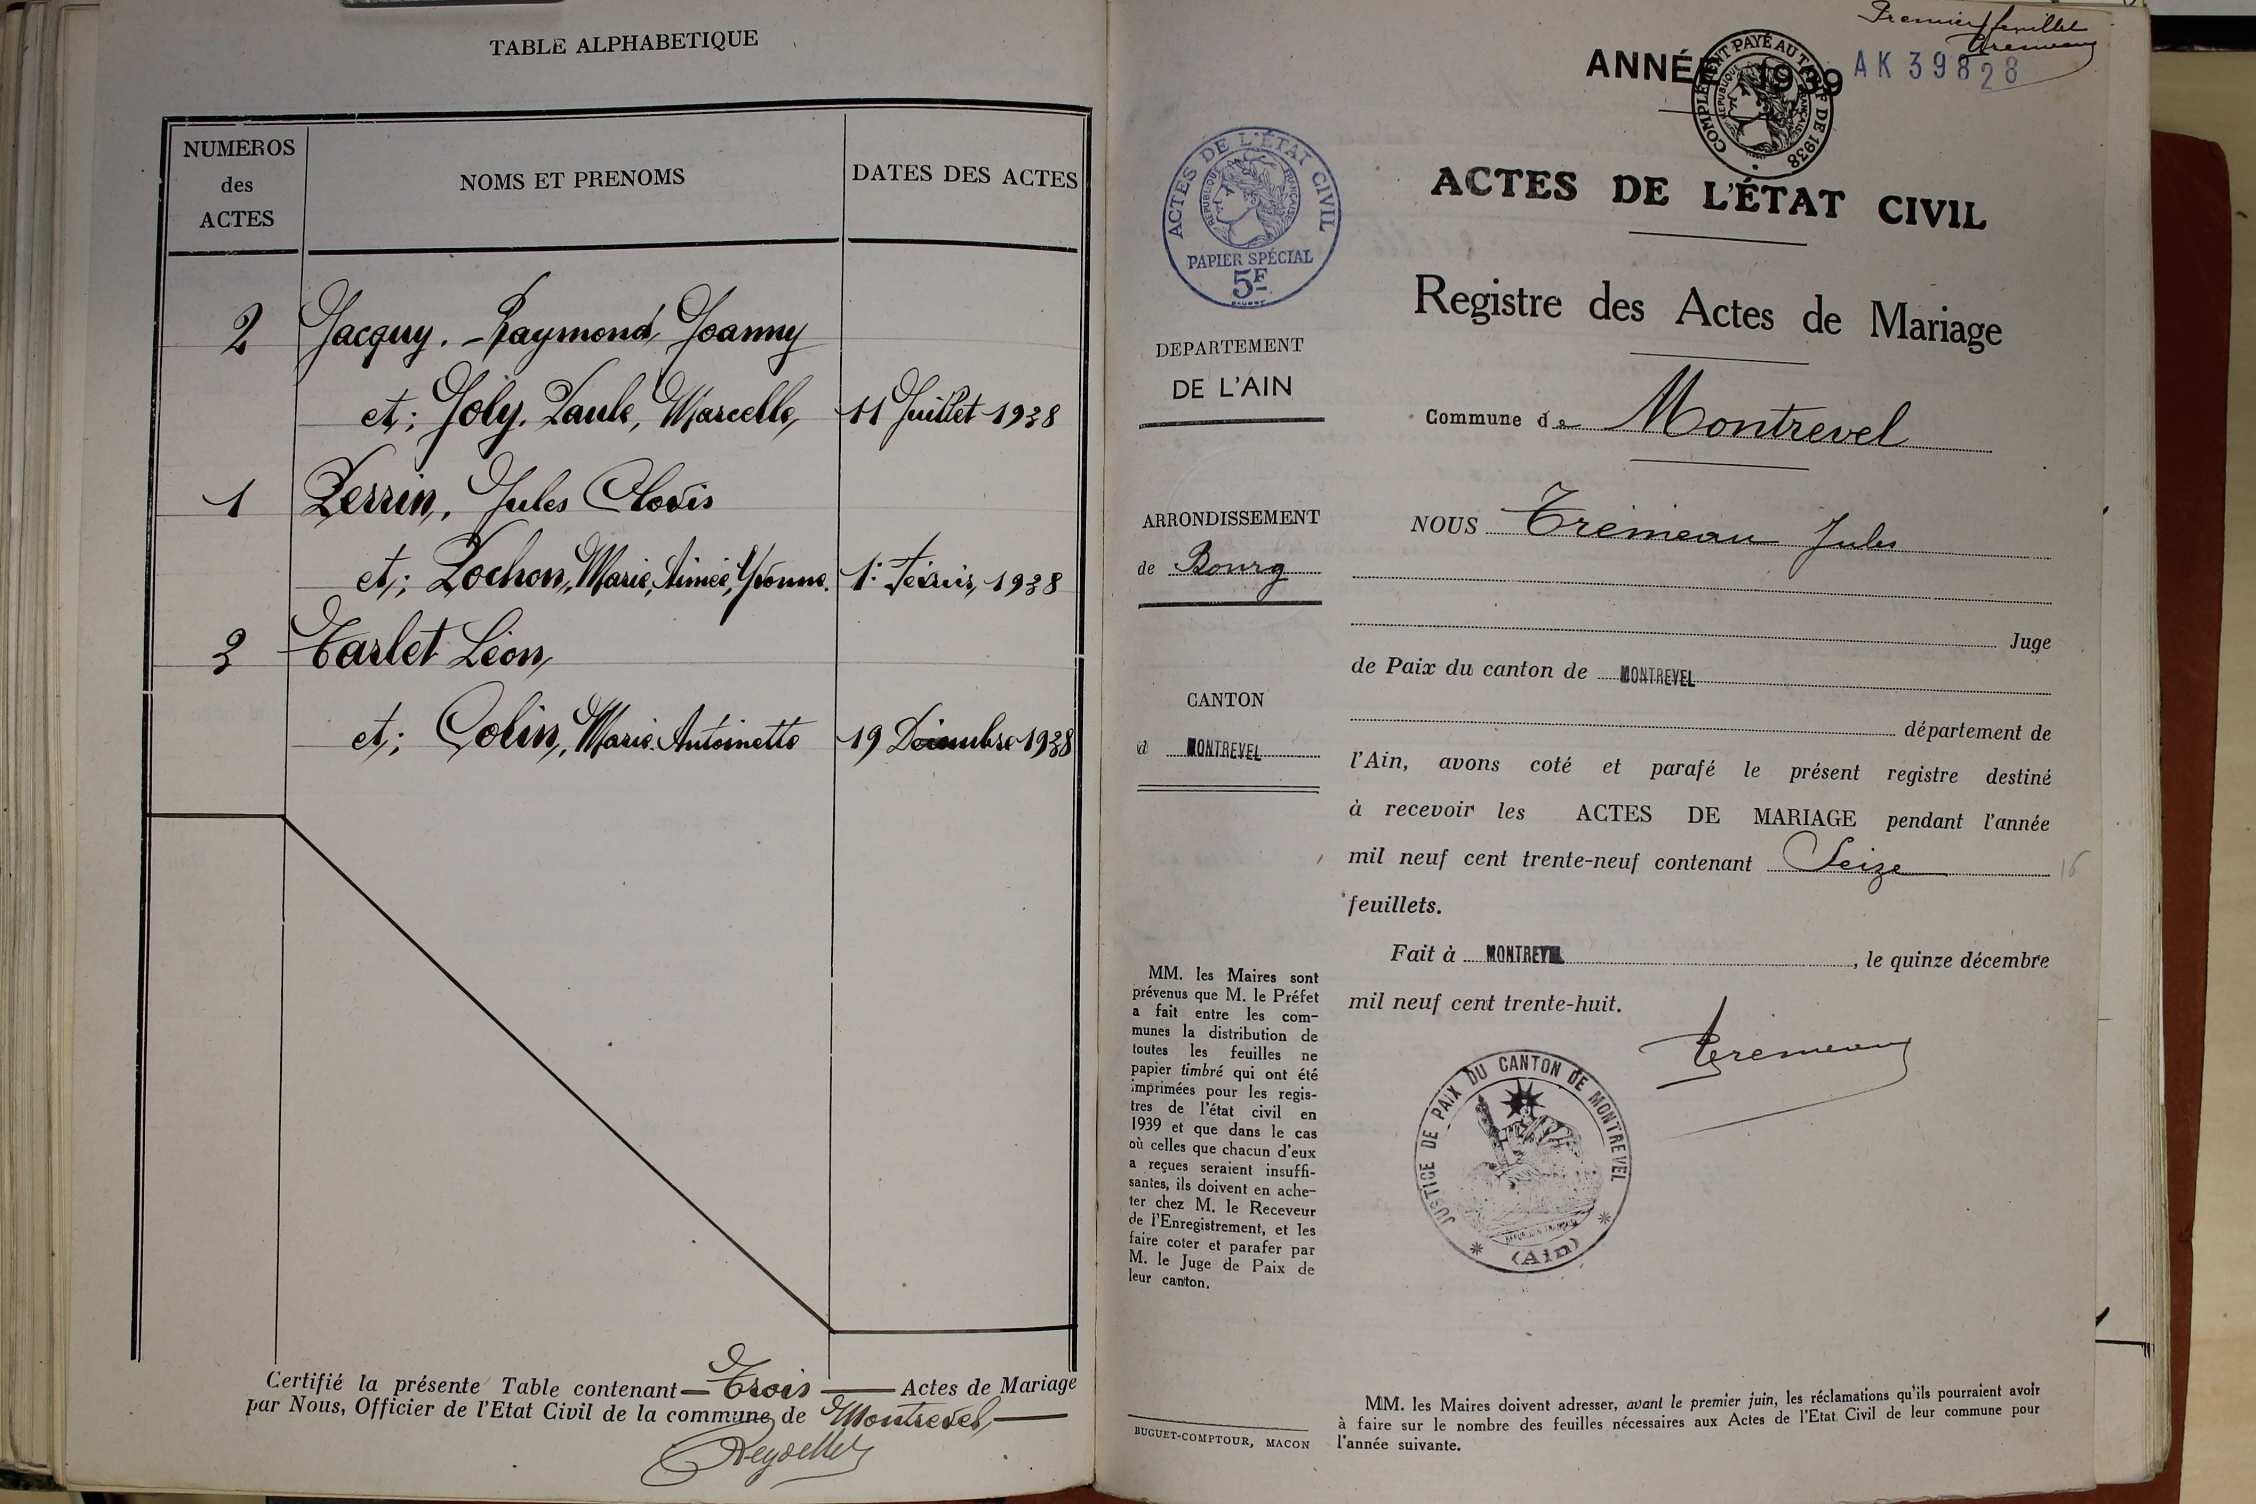 TABLE ALPHABETIQUE
NUMEROS
des
ACTES
NOMS ET PRENOMS
DATES DES ACTES
2 Jacquy. - Raymond, Joanny
et; Joly. Paule, Marcelle, 11 Juillet 1938
1 Perrin, Jules Clovis
et; Pochon, Marie, Aimée, Yvonne. 1er Février, 1938
3 Tarlet Léon,
et; Colin, Marie. Antoinette 19 Décembre 1938
Certifié la présente Table contenant — Trois — Actes de Mariage
par Nous, Officier de l'Etat Civil de la commune de Montrevel, —
Premier feuillet
Trémeau
ANNÉE 1939
AK 39828
COMPLÉMENT PAYÉ AU TARIF DE 1938
RÉPUBLIQUE FRANÇAISE
ACTES DE L'ÉTAT CIVIL
RÉPUBLIQUE FRANÇAISE
PAPIER SPÉCIAL
5F
ACTES DE L'ÉTAT CIVIL
Registre des Actes de Mariage
DEPARTEMENT
DE L'AIN
Commune de Montrevel
ARRONDISSEMENT
de Bourg
CANTON
d MONTREVEL
NOUS Trémeau Jules
Juge
de Paix du canton de MONTREVEL
département de
l'Ain, avons coté et parafé le présent registre destiné
à recevoir les ACTES DE MARIAGE pendant l'année
mil neuf cent trente-neuf contenant Seize 16
feuillets.
Fait à MONTREVEL, le quinze décembre
mil neuf cent trente-huit.
Trémeau
JUSTICE DE PAIX DU CANTON DE MONTREVEL
(Ain)
MM. les Maires sont
prévenus que M. le Préfet
a fait entre les com-
munes la distribution de
toutes les feuilles ne
papier timbré qui ont été
imprimées pour les regis-
tres de l'état civil en
1939 et que dans le cas
où celles que chacun d'eux
a reçues seraient insuffi-
santes, ils doivent en ache-
ter chez M. le Receveur
de l'Enregistrement, et les
faire coter et parafer par
M. le Juge de Paix de
leur canton.
BUGUET-COMPTOUR, MACON
MM. les Maires doivent adresser, avant le premier juin, les réclamations qu'ils pourraient avoir
à faire sur le nombre des feuilles nécessaires aux Actes de l'Etat Civil de leur commune pour
l'année suivante.